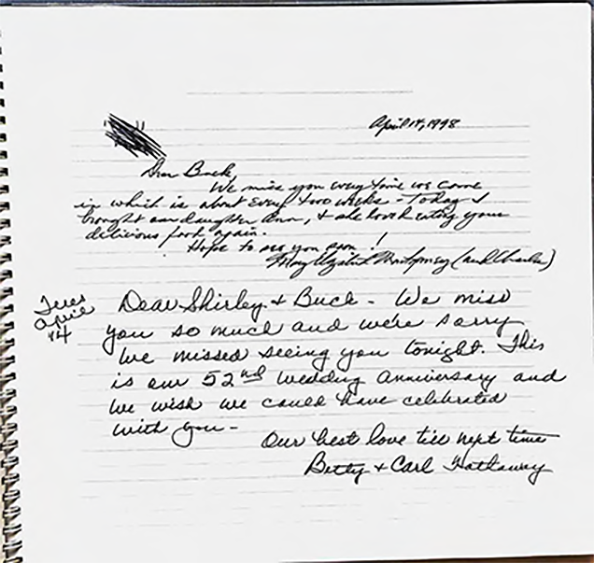 April 14, 1998
Dear Buck,
We miss you every time we come
in which is about every two weeks - Today I
brought our daughter Ann, & she loved eating your
delicious food again.
Hope to see you soon!
Mary Elizabeth Montgomery (and Charles)
Tues
April
14
Dear Shirley & Buck - We miss
you so much and we're sorry
we missed seeing you tonight. This
is our 52nd wedding anniversary and
we wish we could have celebrated
with you -
Our best love till next time
Betty & Carl Hathaway